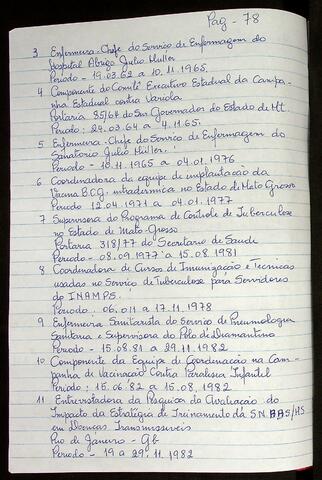 Pag - 78
3 Enfermeira-Chefe do Serviço de Enfermagem do
Hospital Abrigo Julio Muller
Periodo - 19.03.62 a 10.11.1965.
4 Componente do Comitê Executivo Estadual da Campa-
nha Estadual contra Variola
Portaria 85/64 do Snr Governador do Estado de Mt.
Periodo: 24.03.64 a 4.11.65.
5 Enfermeira-Chefe do Serviço de Enfermagem do
Sanatório Julio Müller.
Periodo - 10.11.1965 a 04.01.1976
6. Coordenadora da equipe de implantação da
Vacina B.C.G. intradermica no Estado de Mato Grosso
Periodo 12.04.1971 a 04.01.1977
7 Supervisora do Programa de Controle de Tuberculose
no Estado de Mato-Grosso
Portaria 318/77 do Secretario de Saude
Periodo - 08.09.1977 a 15.08.1981
8 Coordenadora de Cursos de Imunização e Técnicas
usadas no Serviço de Tuberculose para Servidores
do INAMPS.
Periodo: 06. a 17.11.1978
9 Enfermeira Sanitarista do Serviço de Pneumologia
Sanitaria e Supervisora do Polo de Diamantino
Periodo - 15.08.81 a 29.11.1982
10 Componente da Equipe de Coordenação na Cam-
panha de Vacinação Contra Paralisia Infantil
Periodo: 15.06.82 a 15.08.1982
11 Entrevistadora da Pesquisa da Avaliação do
Impacto da Estratégia de Treinamento da S.N.
em Doenças Transmissiveis
Rio de Janeiro - Gb
Periodo - 19 a 29.11.1982